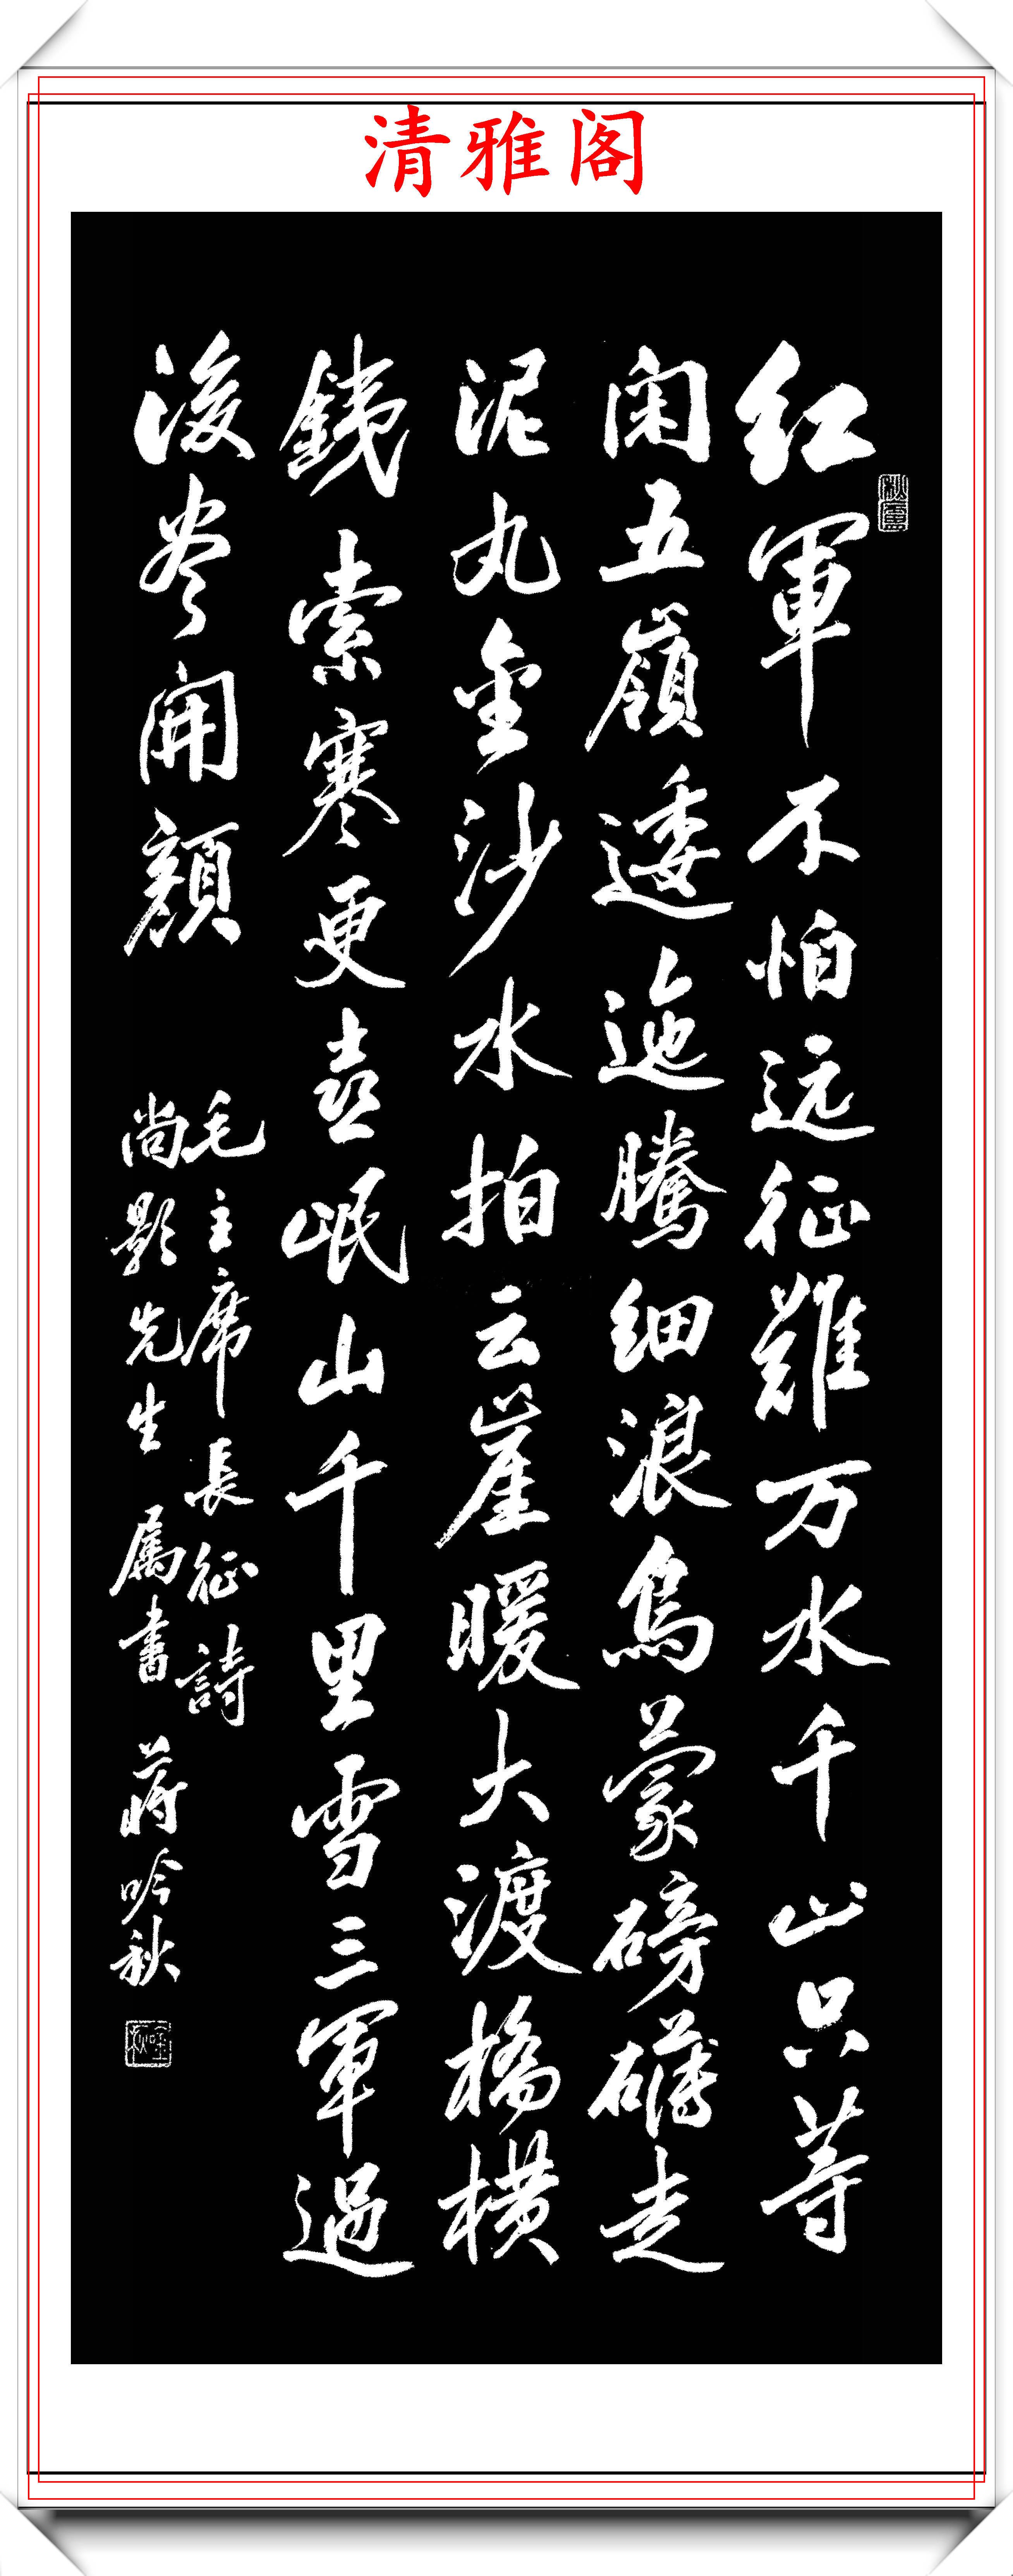 清雅阁
红軍不怕远征難万水千山只等
闲五嶺逶迤騰细浪烏蒙磅礴走
泥丸金沙水拍云崖暖大渡橋横
銕索寒更喜岷山千里雪三軍過
後尽開顔
毛主席長征詩
尚影先生属書 蒋吟秋